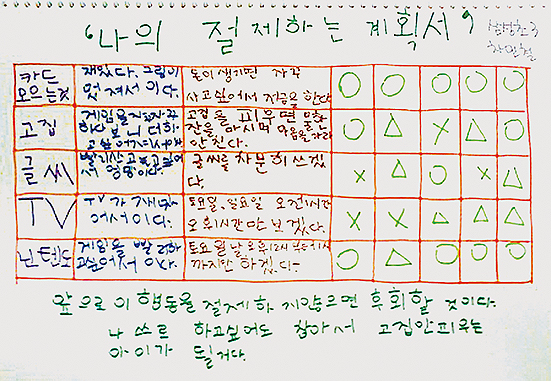 '나의 절제하는 계획서'
카드 모으는것
재밌다. 그림이 멋져서 이다.
돈이 생기면 자꾸 사고싶어서 저금을 한다
○ ○ ○ ○ ○
고집
게임을 자꾸 하다보니 더하고
고집을 피우면 물한잔을 마시며 마음을
○ △ × △ △
글씨
빨리
글씨를 차분히 쓰겠다.
○ △ ○ × △
TV
TV가 재미있어서이다.
토요일, 일요일 오전1시간 오후1시간만 보겠다.
× × △ △ △
닌텐도
게임을 빨리하고싶어서 이다.
토요일날 오후12시부터1시까지만 하겠다.
○ △ ○ ○ ○
앞으로 이 행동을 절제하지않으면 후회할 것이다.
나 쓰로 하고싶어도 참아서 고집안피우는
아이가 될거다.